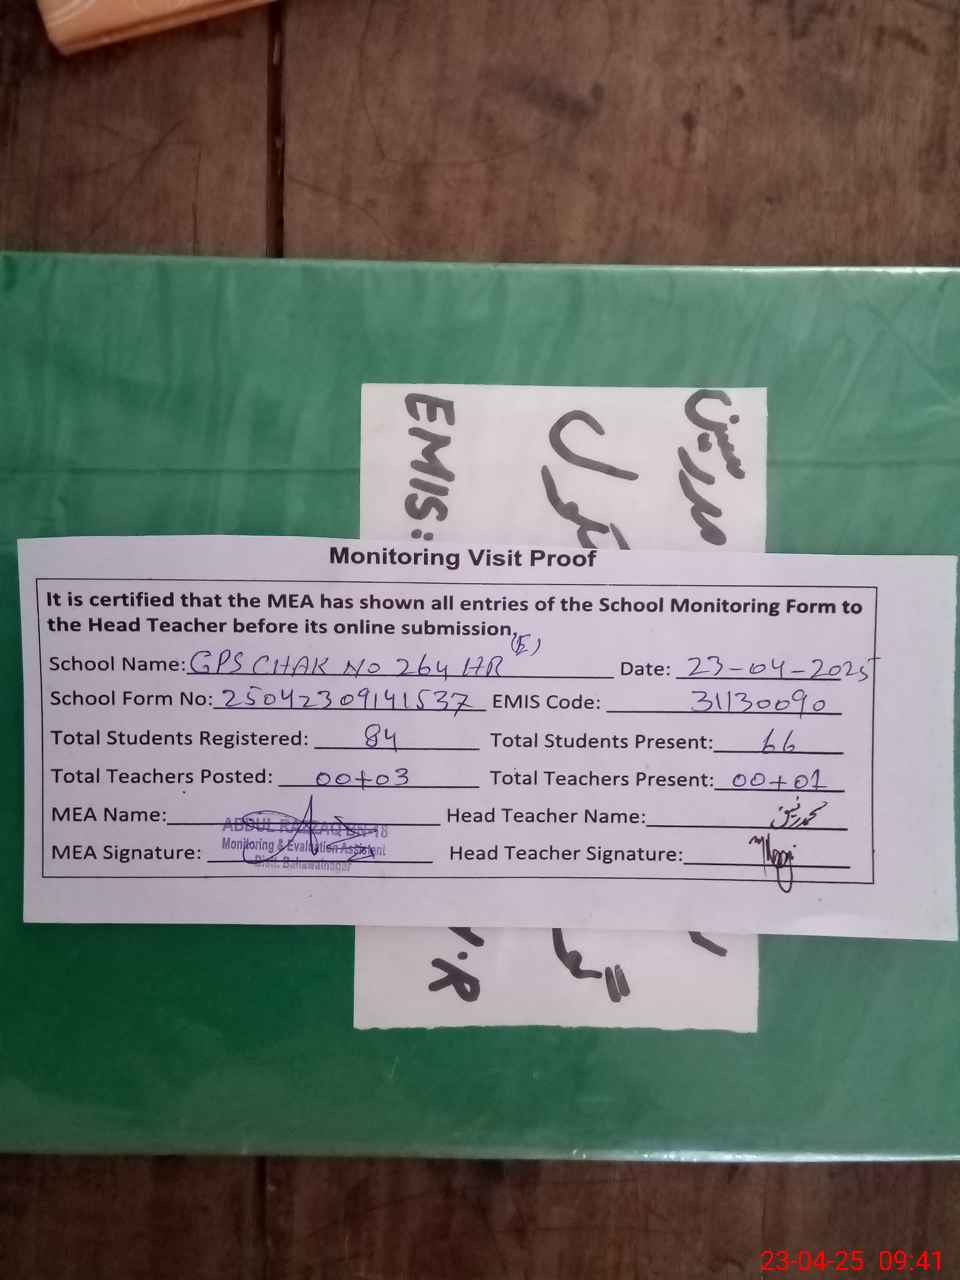 EMIS:
مدرسین
Monitoring Visit Proof
It is certified that the MEA has shown all entries of the School Monitoring Form to
the Head Teacher before its online submission.
School Name: GPS CHAK NO 264 HR (E) Date: 23-04-2025
School Form No: 25042309141537 EMIS Code: 31130090
Total Students Registered: 84 Total Students Present: 66
Total Teachers Posted: 00+03 Total Teachers Present: 00+01
MEA Name: Head Teacher Name:
ABDUL RAZZAQ BN-18
Monitoring & Evaluation Assistent
MEA Signature: Head Teacher Signature:
Distt. Bahawalnagar
.R
23-04-25 09:41